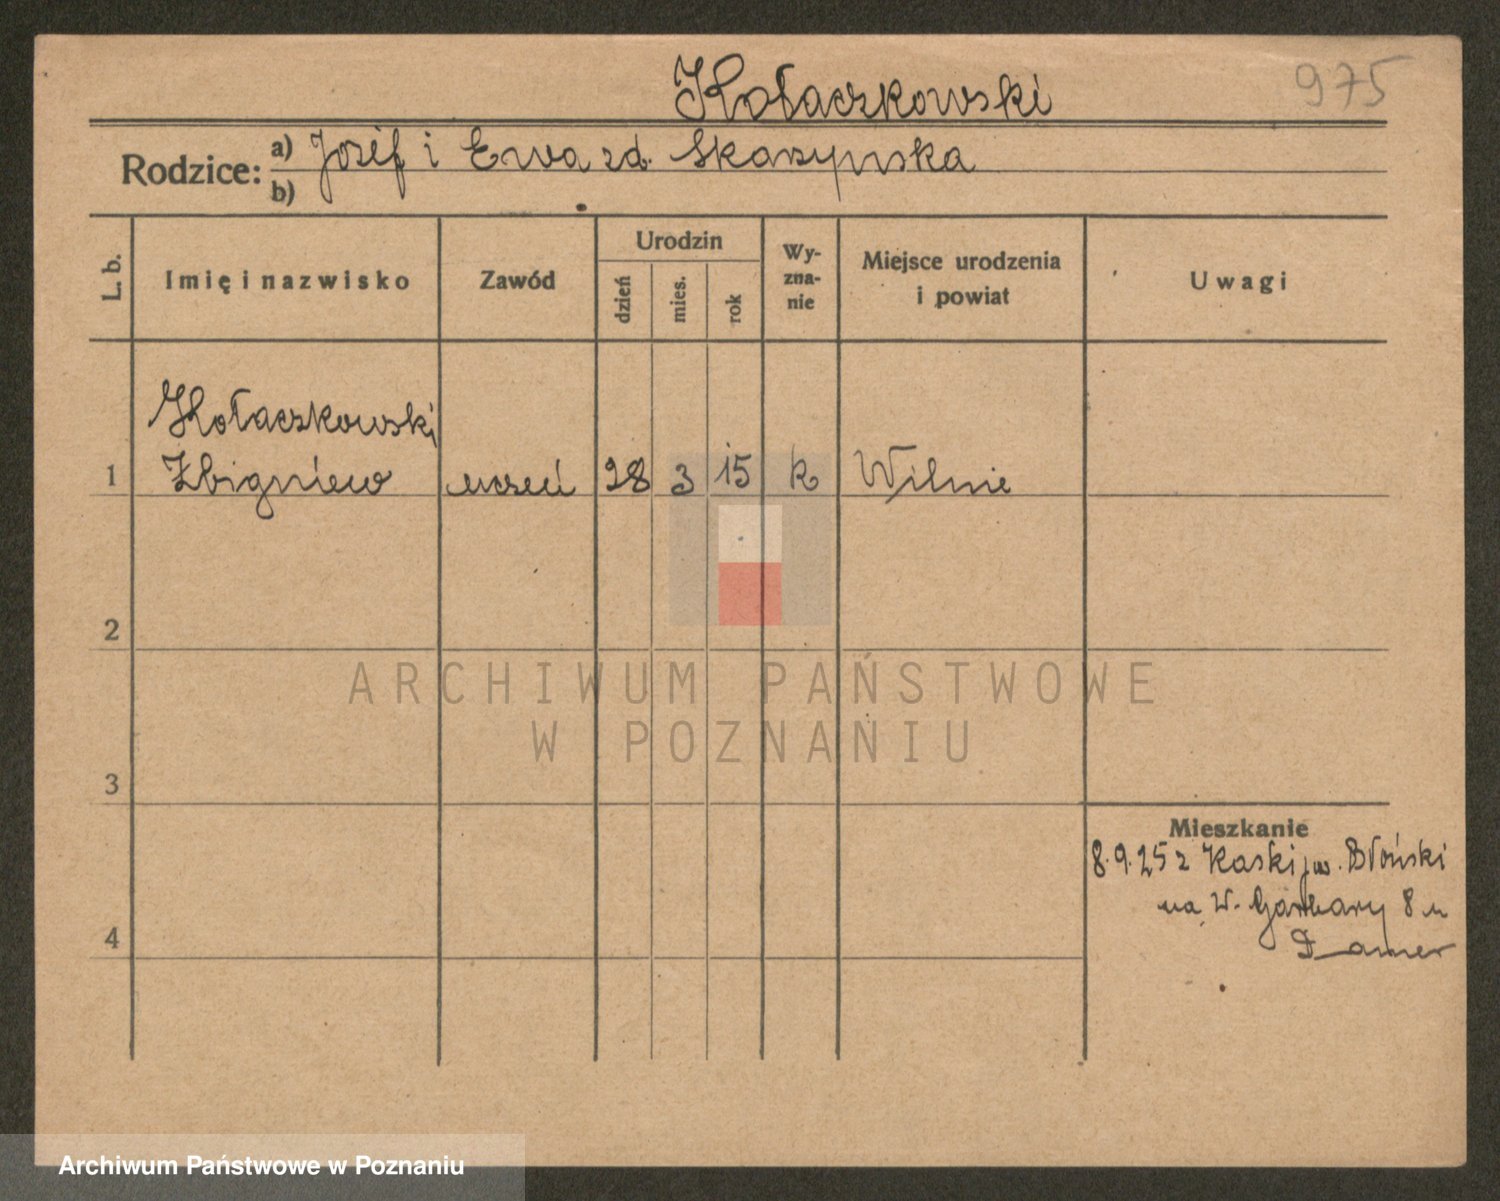 Kołaczkowski
975
Rodzice: a) Józef i Ewa zd. Skarzynska
b)
L. b. Imię i nazwisko Zawód Urodzin dzień mies. rok Wy-zna-nie Miejsce urodzenia i powiat Uwagi
Kołaczkowski
1 Zbigniew uczeń 28 3 15 k Wilnie
2
ARCHIWUM PAŃSTWOWE
W POZNANIU
3
Mieszkanie
8.9.25 z Kaski pw. Błoński
na W. Garbary 8 u
4
Archiwum Państwowe w Poznaniu